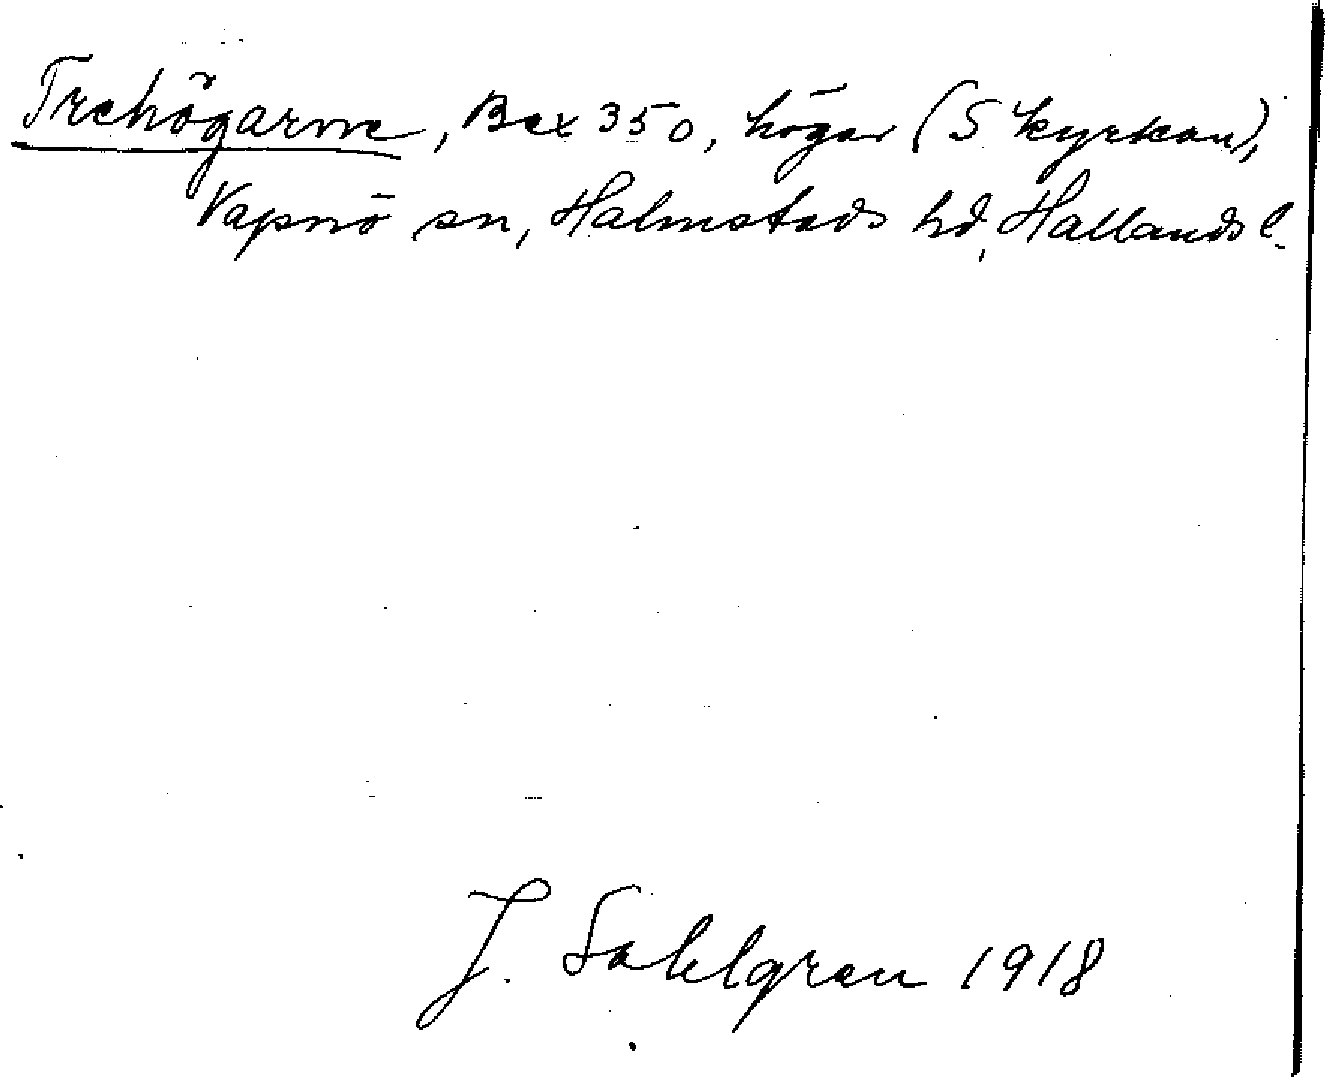 Trehögarne, Bex 350, högar (S kyrkan),
Vapnö sn, Halmstads hd, Hallands l.
J. Sahlgren 1918